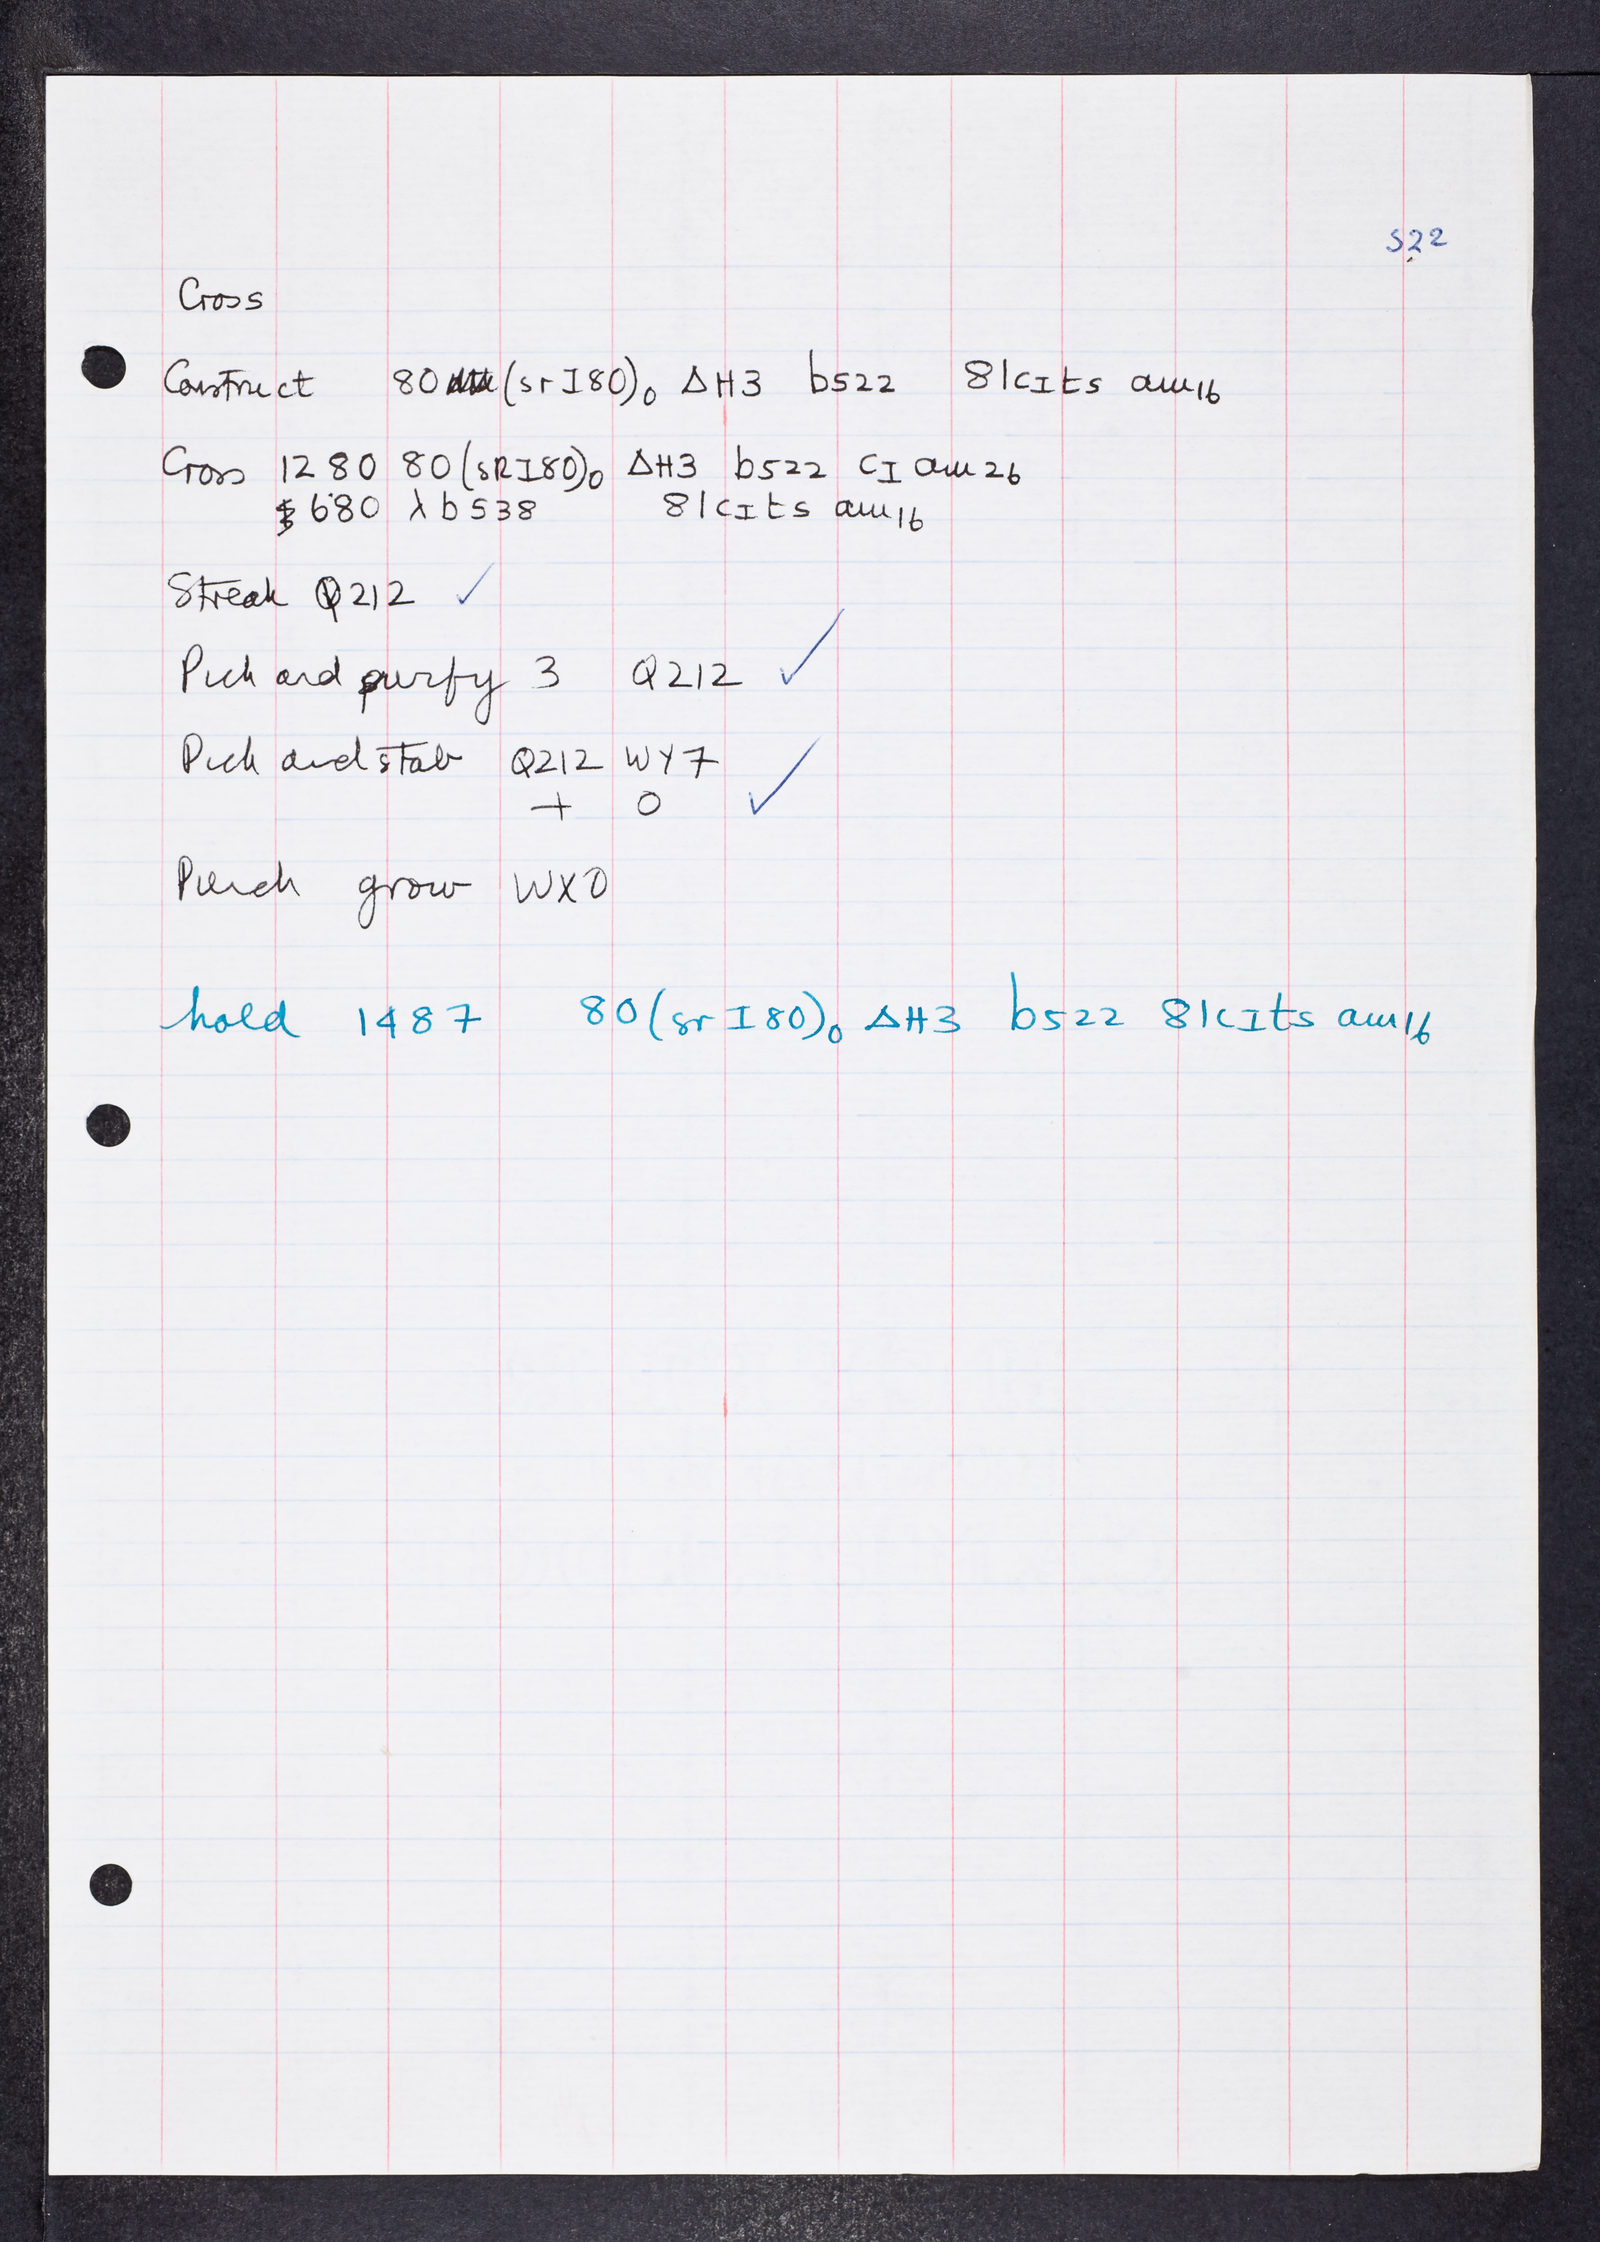 S22
Cross
Construct 80 (srI80)₀ ΔH3 b522 81cIts am16
Cross 1280 80(sRI80)₀ ΔH3 b522 cI am26
680 λb538 81cIts am16
Streak Q212 ✓
Pick and purify 3 Q212 ✓
Pick and stab Q212 WY7
+ 0 ✓
Punch grow WX0
hold 1487 80(srI80)₀ ΔH3 b522 81cIts am16